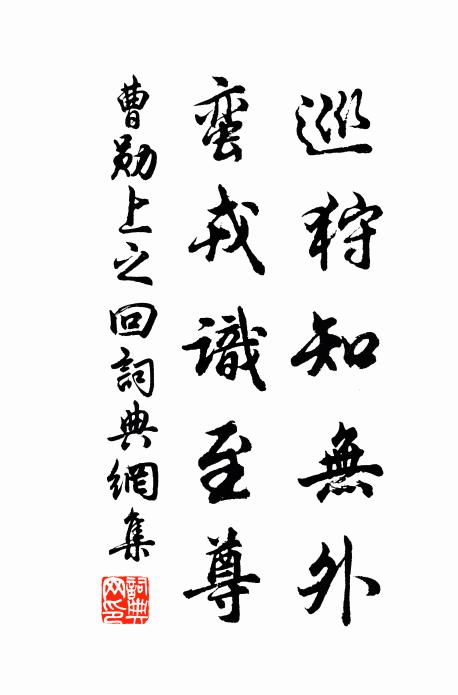 巡狩知無外
蛮戎識至尊
曹勛上之回詞典網集
詞典网印